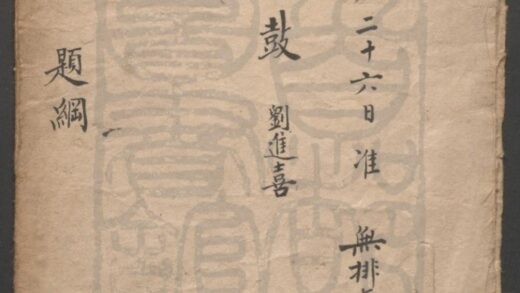 二十六日准 無排
鼓 劉進喜
題綱